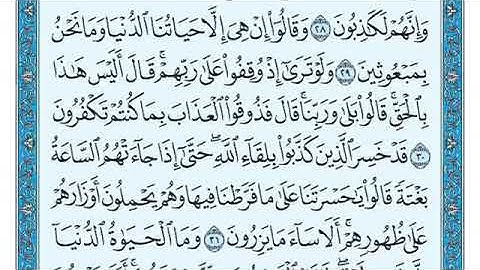 وَإِنَّهُمْ لَكَٰذِبُونَ ٢٨ وَقَالُوٓا۟ إِنْ هِىَ إِلَّا حَيَاتُنَا ٱلدُّنْيَا وَمَا نَحْنُ
بِمَبْعُوثِينَ ٢٩ وَلَوْ تَرَىٰٓ إِذْ وُقِفُوا۟ عَلَىٰ رَبِّهِمْ ۚ قَالَ أَلَيْسَ هَٰذَا
بِٱلْحَقِّ ۚ قَالُوا۟ بَلَىٰ وَرَبِّنَا ۚ قَالَ فَذُوقُوا۟ ٱلْعَذَابَ بِمَا كُنتُمْ تَكْفُرُونَ
٣٠ قَدْ خَسِرَ ٱلَّذِينَ كَذَّبُوا۟ بِلِقَآءِ ٱللَّهِ ۖ حَتَّىٰٓ إِذَا جَآءَتْهُمُ ٱلسَّاعَةُ
بَغْتَةً قَالُوا۟ يَٰحَسْرَتَنَا عَلَىٰ مَا فَرَّطْنَا فِيهَا وَهُمْ يَحْمِلُونَ أَوْزَارَهُمْ
عَلَىٰ ظُهُورِهِمْ ۚ أَلَا سَآءَ مَا يَزِرُونَ ٣١ وَمَا ٱلْحَيَوٰةُ ٱلدُّنْيَآ